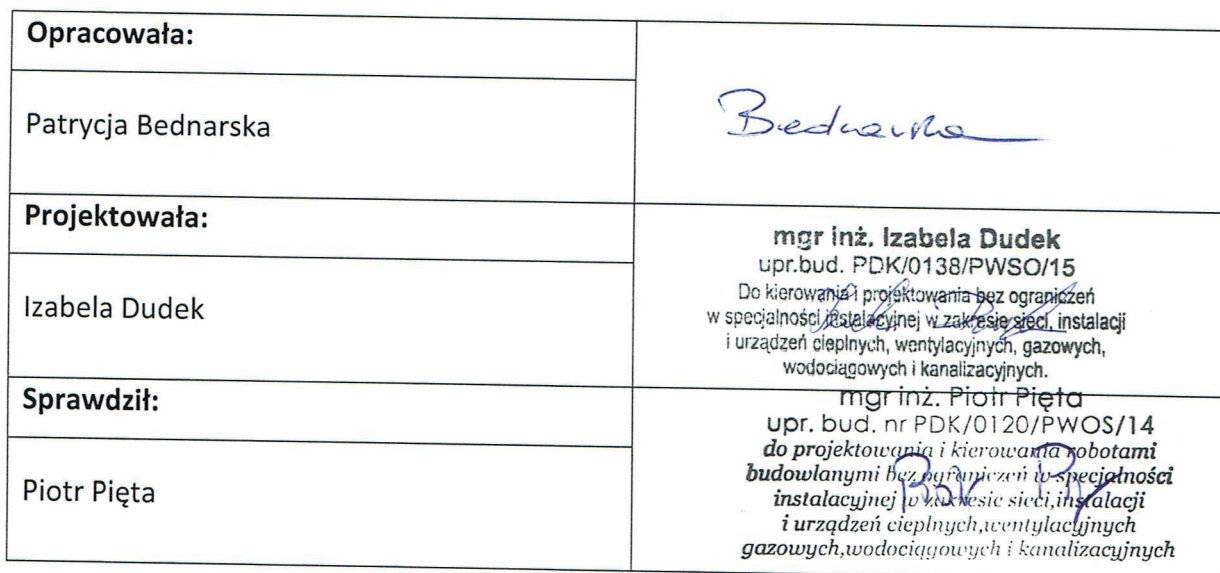 Opracowała:
Patrycja Bednarska
Bednarska
Projektowała:
Izabela Dudek
mgr inż. Izabela Dudek
upr.bud. PDK/0138/PWSO/15
Do kierowania i projektowania bez ograniczeń
w specjalności instalacyjnej w zakresie sieci, instalacji
i urządzeń cieplnych, wentylacyjnych, gazowych,
wodociągowych i kanalizacyjnych.
Sprawdził:
Piotr Pięta
mgr inż. Piotr Pięta
upr. bud. nr PDK/0120/PWOS/14
do projektowania i kierowania robotami
budowlanymi bez ograniczeń w specjalności
instalacyjnej w zakresie sieci,instalacji
i urządzeń cieplnych,wentylacyjnych
gazowych,wodociągowych i kanalizacyjnych